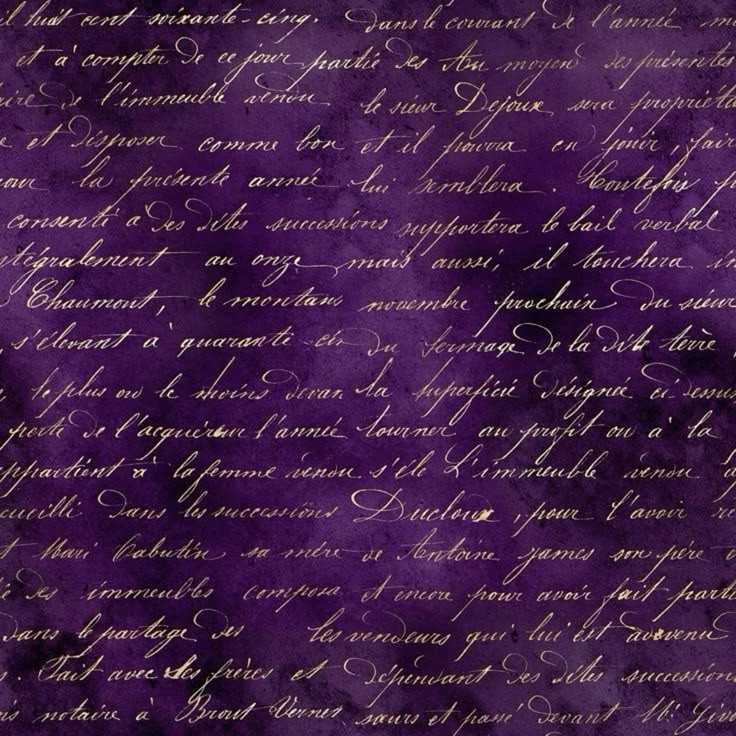 il huit cent soixante-cinq. dans le courant de l'année
et à compter de ce jour partie des Au moyen des présentes
de l'immeuble vendu le sieur Dejoux sera
et disposer comme bon et il pourra en jouir, fair
la présente année lui semblera. Toutefois
consenti à des dites successions supportera le bail verbal
au onze mais aussi, il touchera
Chaumont, le montans novembre prochain du sieur
s'élevant à quarante du fermage de la dite terre
le plus ou le moins devan la superficie designée ci dessus
perte de l'acquéreur l'année tourner au profit ou à la
appartient à la femme vendu s'éle L'immeuble vendu
dans les successions Ducloux, pour l'avoir
Mari Cabutin sa mère de Antoine james son père
des immeubles composa et encore pour avoir fait parti
dans le partage des les vendeurs qui lui est advenu
Fait avec les frères et dépendant des dites succession
notaire à Brout Vernet sœurs et passé devant Mr